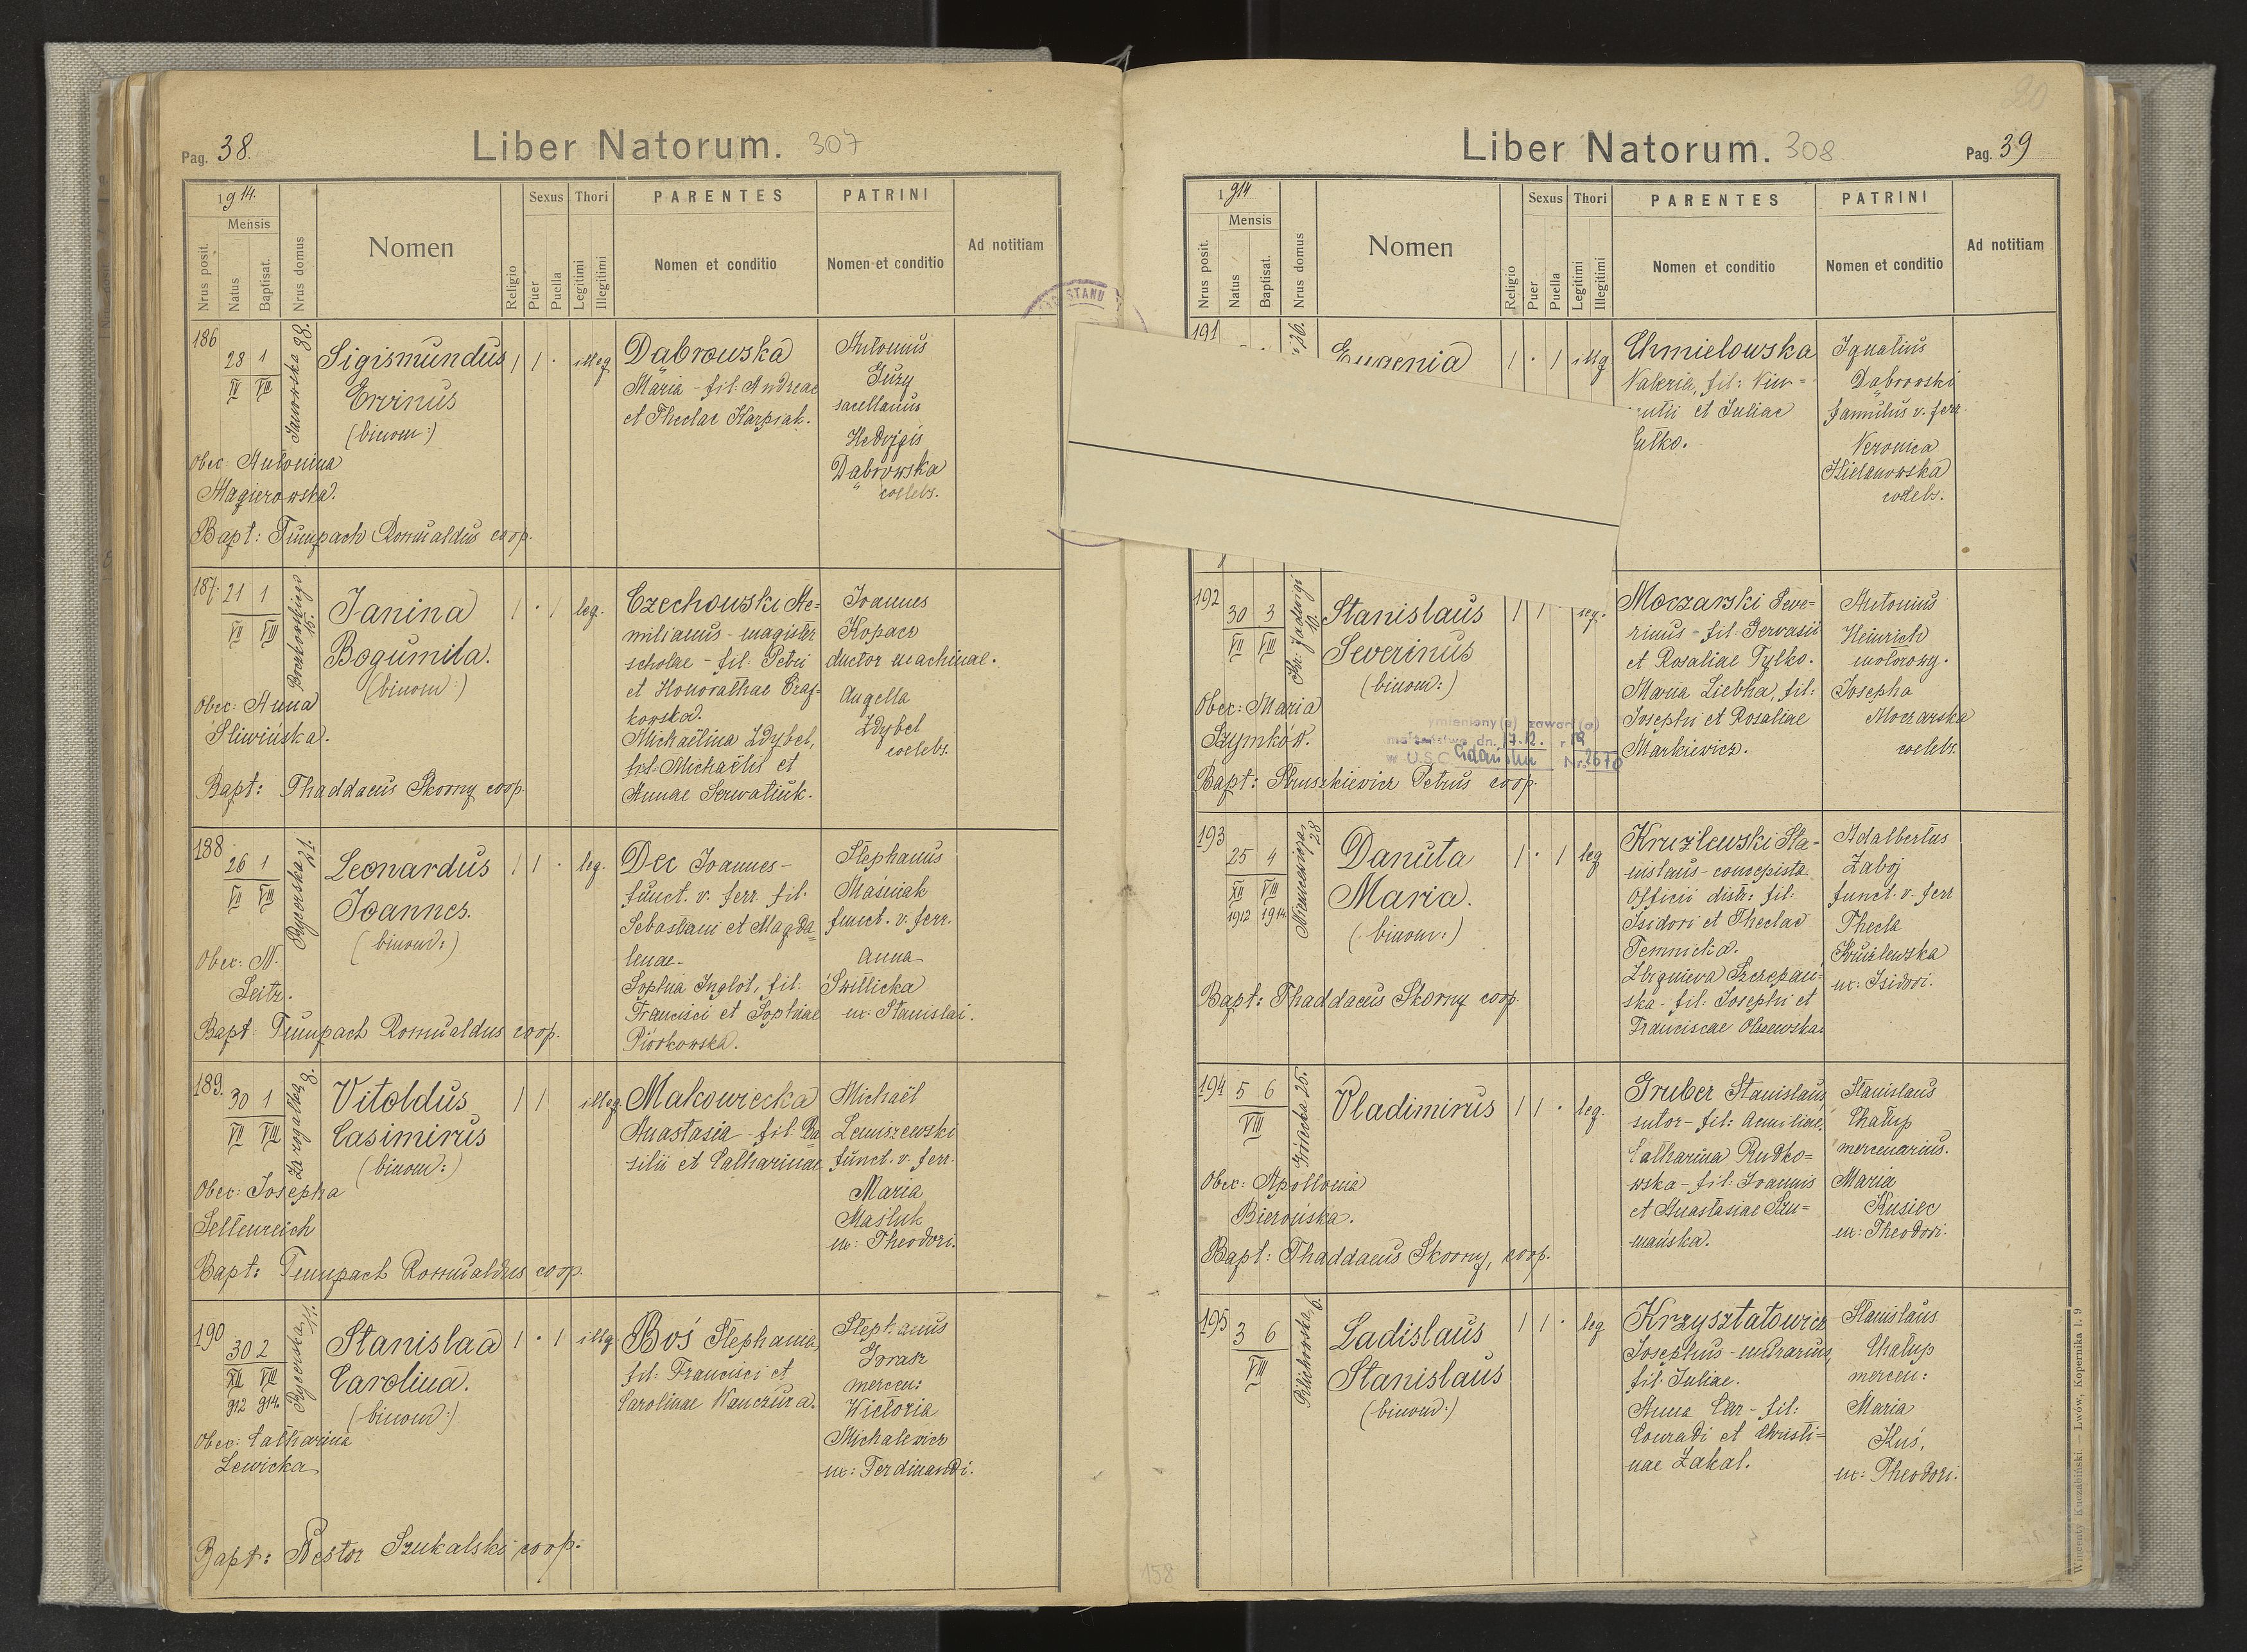 Pag. 38.
Liber Natorum. 307
1914.
Mensis
Nrus posit.
Natus
Baptisat.
Nrus domus
Nomen
Religio
Sexus
Puer
Puella
Thori
Legitimi
Illegitimi
PARENTES
Nomen et conditio
PATRINI
Nomen et conditio
Ad notitiam
186
28 1
IV VIII
Janowska 88.
Sigismundus
Ervinus
(binom:)
1 1 · illeg.
Dąbrowska
Maria - fil: Andreae
et Theclae Karpiak.
Antonius
Guzy
sacellanus
Hedvigis
Dąbrowska
coelebs.
Obec: Antonina
Magierowska.
Bapt: Tumpach Romualdus coop.
187.
21 1
VII VIII
15.
Janina
Bogumila.
(binom:)
1 · 1 leg.
Czechowski Ae=
milianus - magister
scholae - fil: Petri
et Honorathae
kowska.
Michaëlina Zdybel,
fil: Michaëlis et
Annae Serwatiuk.
Joannes
Kopacz
ductor machinae.
Angella
Zdybel
coelebs.
Obec: Anna
Śliwińska.
Bapt: Thaddaeus Skorny coop.
188
26 1
VII VIII
Rycerska 21.
Leonardus
Joannes.
(binom:)
1 1 · leg.
Dec Joannes -
funct. v. ferr. fil:
Sebastiani et Magda=
lenae -
Sophia Inglot, fil:
Francisci et Sophiae
Piorkowska.
Stephanus
Maśniak
funct. v. ferr.
Anna
Świtlicka
ux: Stanislai.
Obec: N.
Seitz.
Bapt: Tumpach Romualdus coop.
189.
30 1
VII VIII
Za rogatką 8.
Vitoldus
Casimirus
(binom:)
1 1 illeg.
Makowiecka
Anastasia - fil: Ba
silii et Catharinae
Michaël
Lewiszewski
funct. v. ferr.
Maria
Maśluk
ux: Theodori.
Obec: Josepha
Seltenreich
Bapt: Tumpach Romualdus coop.
190
30 2
XII VIII
912 914.
Rycerska 11.
Stanislaa
Carolina.
(binom:)
1 · 1 illeg.
Boś Stephania,
fil: Francisci et
Carolinae Wanczura.
Stephanus
Gorasz
mercen:
Wictoria
Michalewicz
ux: Ferdinandi.
Obec: Catharina
Lewicka
Bapt: Nestor Szukalski coop:
STANU
20
Liber Natorum. 308
Pag. 39
1914
Mensis
Nrus posit.
Natus
Baptisat.
Nrus domus
Nomen
Religio
Sexus
Puer
Puella
Thori
Legitimi
Illegitimi
PARENTES
Nomen et conditio
PATRINI
Nomen et conditio
Ad notitiam
191
Eugenia
1 · 1 illg.
Chmielowska
Valeria, fil: Vin=
et Juliae
Ignatius
Dąbrowski
famulus v. ferr.
Veronica
Kielanowska
coelebs.
192
30 3
VII VIII
Jadwigi 10.
Stanislaus
Severinus
(binom:)
1 1 · leg.
Moczarski Seve=
rinus - fil: Gervasii
et Rosaliae Tylko.
Maria Liebha, fil:
Josephi et Rosaliae
Markiewicz.
Antonius
Heinrich
motorowy.
Josepha
Moczarska
coelebs.
Obec: Maria
Szymków.
wymieniony(a) zawarł(a)
małżeństwo dn. 17.12. r 19
w U.S.C. Gdańsku Nr. 2670
Bapt: Struszkiewicz Petrus coop.
193
25 4
XII VIII
1912 1914
Niemcewicza 28
Danuta
Maria.
(binom:)
1 · 1 leg
Kruzlewski Sta=
nislaus - concepista
Officii distr: fil:
Isidori et Theclae
Temnicka.
Zbigniewa Szczepań=
ska - fil: Josephi et
Franciscae Olszewska.
Adalbertus
Zaboj
funct. v. ferr
Thecla
Kruzlewska
ux: Isidori.
Bapt: Thaddaeus Skorny coop.
194
5 6
VIII
Gródecka 25.
Vladimirus
1 1 · leg.
Gruber Stanislaus
sutor - fil: Aemiliae,
Catharina Rudko=
wska - fil: Joannis
et Anastasiae Szu=
mańska.
Stanislaus
Chałup
mercenarius.
Maria
Kusiec
ux: Theodori.
Obec: Apollonia
Bierońska.
Bapt: Thaddaeus Skorny, coop.
195
3 6
VIII
Pilichowska 6.
Ladislaus
Stanislaus
(binom:)
1 1 · leg
Krzysztatowicz
Josephus - murarius,
fil: Juliae.
Anna Car - fil:
Conradi et Christi=
nae Zakal.
Stanislaus
Chalup
mercen:
Maria
Kuś,
ux: Theodori.
158
Wincenty Kuczabiński. — Lwów, Kopernika l. 9